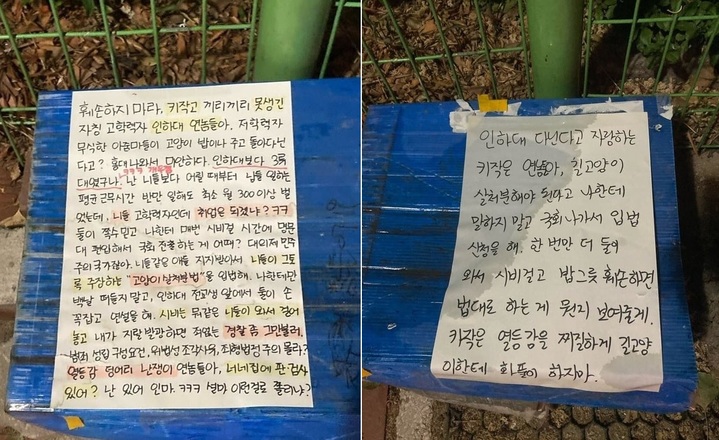 훼손하지 마라. 키작고 끼리끼리 못생긴
자칭 고학력자 인하대 연놈들아. 저학력자
무식한 아줌마들이 고양이 밥이나 주고 돌아다닌
다고? 홍대 나와서 미안하다. 인하대보다 3류
대였구나. ㅋㅋㅋ 난 니들보다 어릴 때부터 남들 일하는
평균 근무시간 반만 일해도 최소 월 300 이상 벌
었는데, 니들 고학력자인데 취업은 되겠냐? ㅋㅋ
둘이 쪽수 믿고 나한테 매번 시비걸 시간에 명문
대 편입해서 국회 진출하는 게 어때? 대의제 민주
주의 국가잖아. 니들같은 애들 지지받아서 니들이 그토
록 주장하는 "고양이 살처분법"을 입법해. 나한테만
백날 떠들지 말고, 인하대 전교생 앞에서 둘이 손
꼭잡고 연설을 해. 시비는 뭐같은 니들이 와서 걸어
놓고 내가 지랄발광하면 처우는 경찰 좀 그만불러,
범죄 성립 구성요건, 위법성 조각사유, 죄형법정주의 몰라?
열등감 덩어리 난쟁이 연놈들아, 너네집에 판·검사
있어? 난 있어 인마. ㅋㅋㅋ 설마 이런걸로 쫄리냐?
인하대 다닌다고 자랑하는
키작은 연놈아, 길고양이
살처분해야 된다고 나한테
말하지 말고 국회 나가서 입법
신청을 해. 한 번만 더 둘이
와서 시비걸고 밥그릇 훼손하면
법대로 하는 게 뭔지 보여줄게.
키작은 열등감을 찌질하게 길고양
이한테 화풀이 하지마.